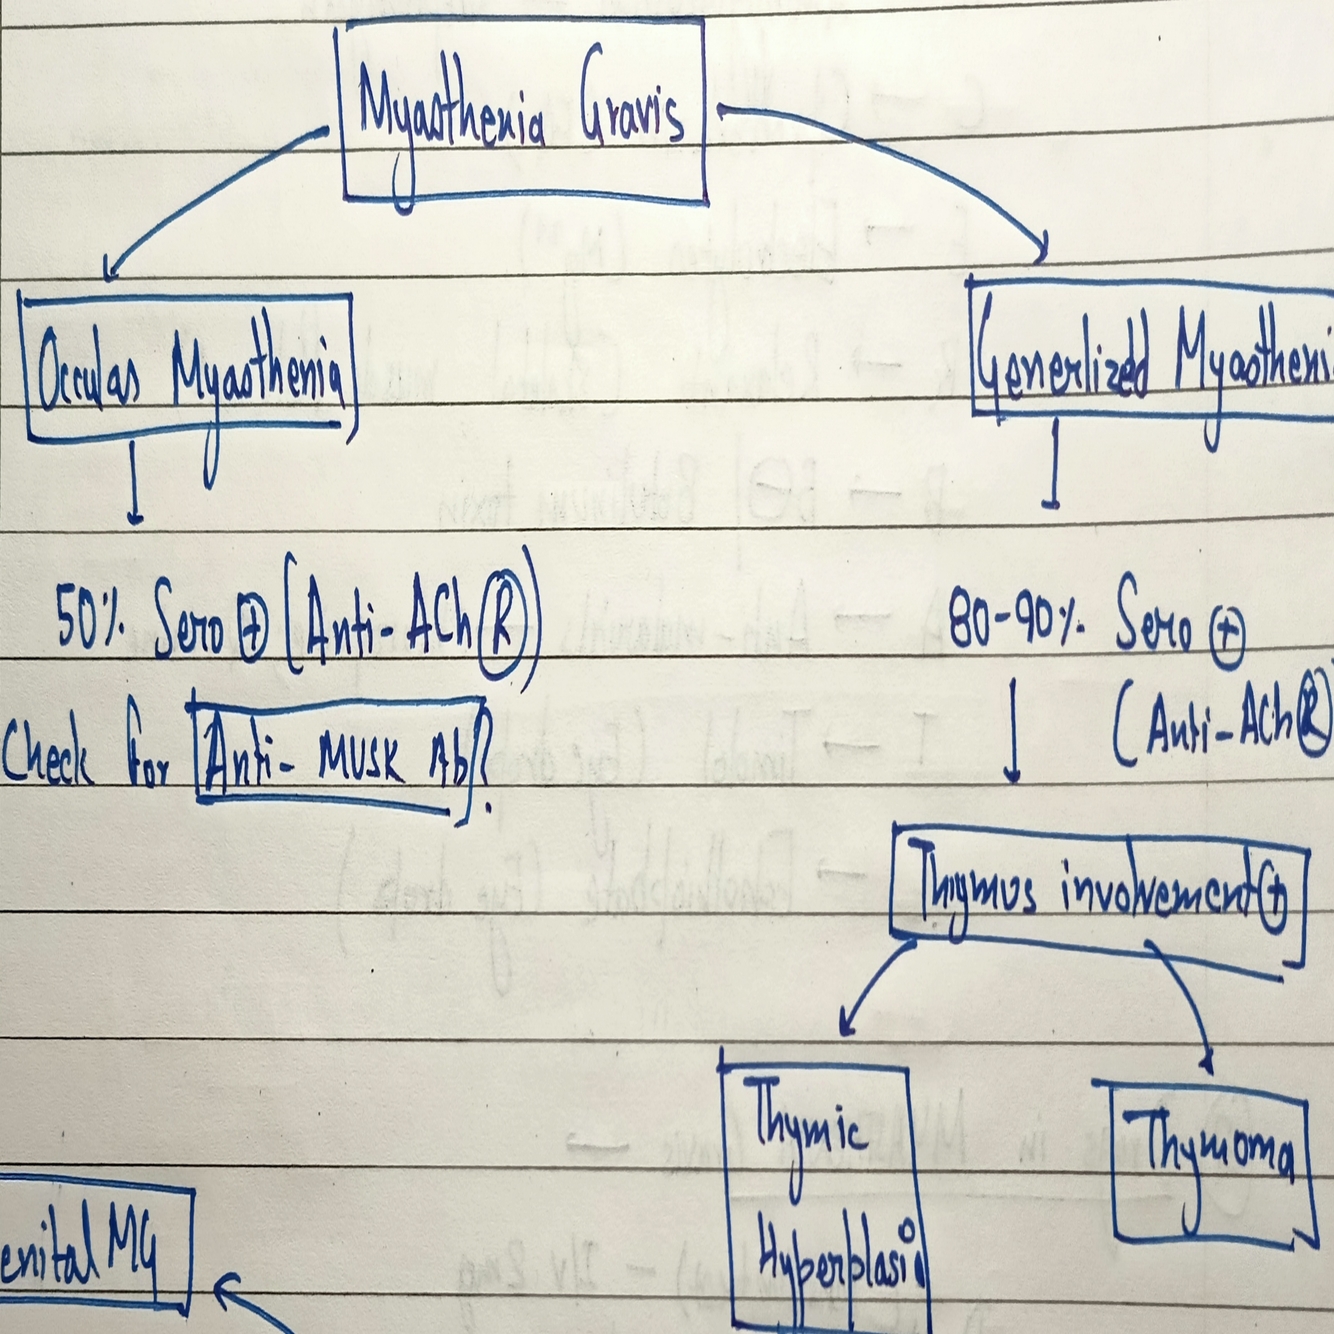 Myasthenia Gravis
Occulas Myasthenia
Generlized Myastheni
50% Sero ⊕ (Anti-ACh Ⓡ)
80-90% Sero ⊕
(Anti-ACh Ⓡ)
Check for Anti- MUSK Ab?
Thymus involvement ⊕
Thymic
Hyperplasia
Thymoma
enital MG